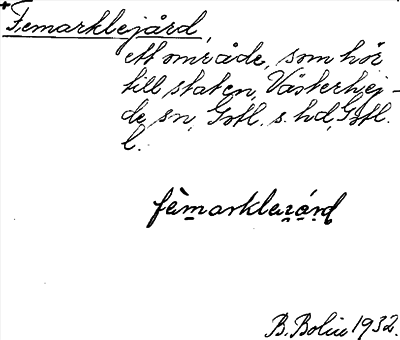 Femarklejård,
ett område, som hör
till staten, Västerhej-
de sn, Gotl. s. hd, Gotl.
l.
B. Bolin 1932.